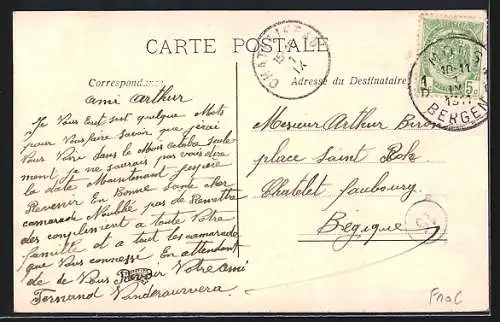 CARTE POSTALE
Correspondance
Adresse du Destinataire
CHATELINEAU
1 IX
MONS
10-11
1 IX
BERGEN
ami Arthur
Je Vous Ecrit quelque Mots
pour Vous faire Savoir que j'irai
Vous Voire dans le Mois seule
ment je ne saurais pas vois dira
la date Maintenant j'espère
Revenir En Bonne Sante cher
camarade N'oublié pas de Remettre
des compliment a toute Votre
famille et a tout les camarade
que Vous connesse En attendant
de Vous Revoir Votre ami
Fernand
Mesieur Arthur Biron
place Saint Rok
Chatelet faubourg
Bégique